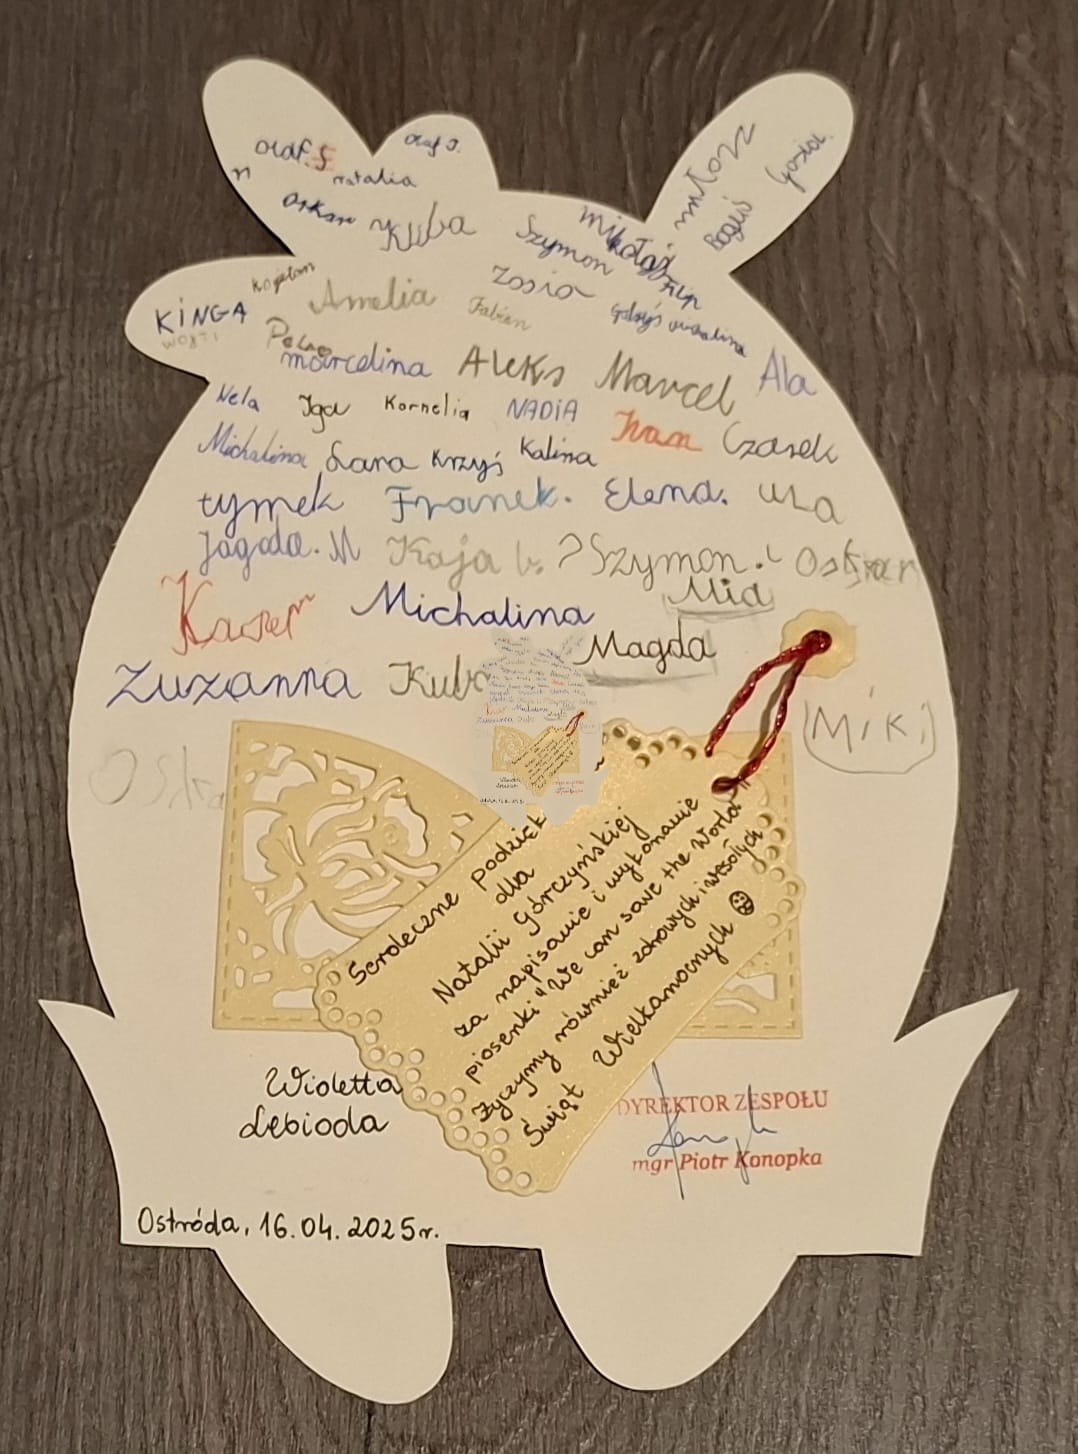 Olaf. S
Olaf J.
natalia
Oskar
Kuba
Szymon
Mikołaj
Filip
miłosz
Boguś
Gosia.
Kajetan
KINGA
WOJTI
Amelia
Zosia
Fabian
Gabryś
marcelina
Aleks
Marcel
Ala
Nela
Iga
Kornelia
NADIA
Iwan
Czarek
Michalina
Lara
Krzyś
Kalina
tymek
Franek.
Elena.
ULA
Jagoda. M
Kaja
Szymon.
Oskar
Kacper
Michalina
Mia
Zuzanna
Kuba
Magda
Miki
Serdeczne podzięk
dla
Natalii Górczyńskiej
za napisanie i wykonanie
piosenki "We can save the World"
Życzymy również zdrowych i wesołych
Świąt Wielkanocnych
Wioletta
Lebioda
DYREKTOR ZESPOŁU
mgr Piotr Konopka
Ostróda, 16.04.2025r.